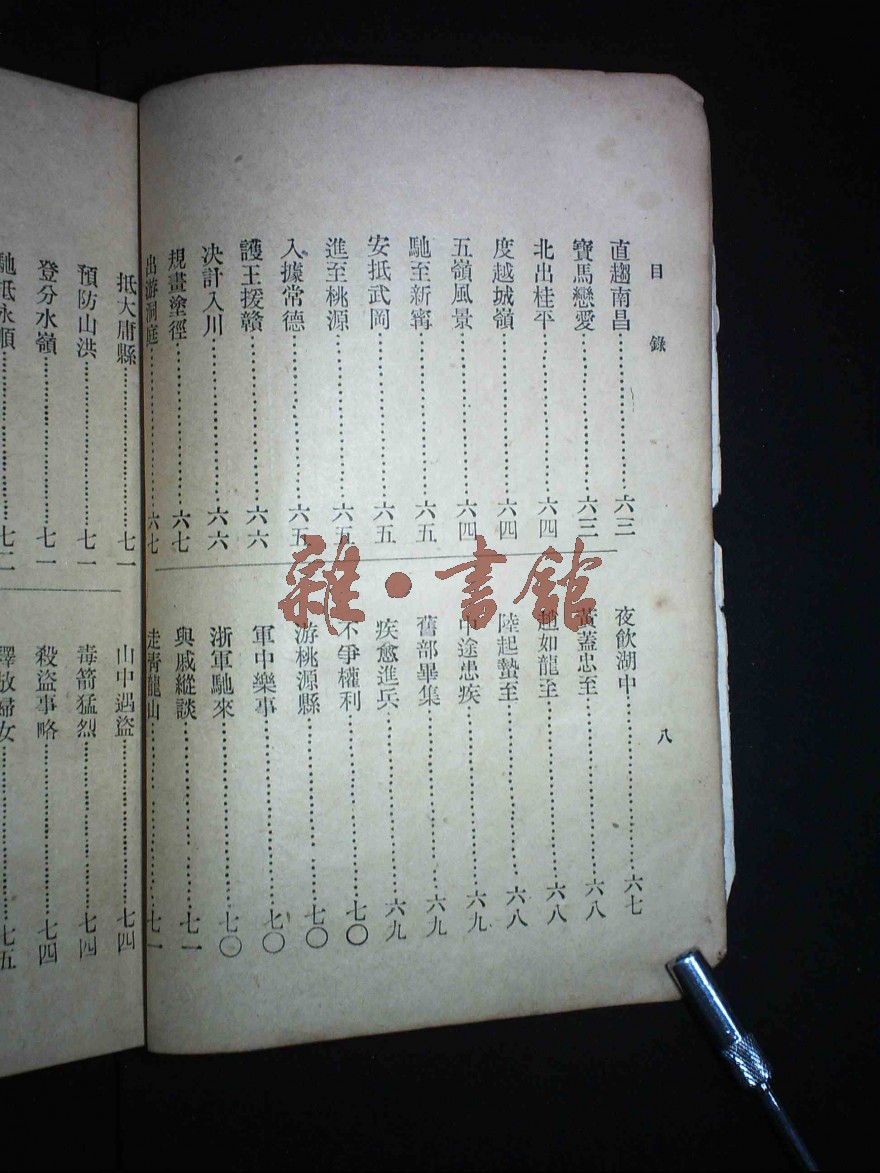 目錄
八
直趨南昌……六三
寶馬戀愛……六三
北出桂平……六四
度越城嶺……六四
五嶺風景……六四
馳至新寗……六五
安抵武岡……六五
進至桃源……六五
入據常德……六五
護王援贛……六六
决計入川……六六
規畫塗徑……六七
出游洞庭……六七
夜飲湖中……六七
黃蓋忠至……六八
趙如龍至……六八
陸起蟄至……六八
中途患疾……六九
舊部畢集……六九
疾愈進兵……六九
不爭權利……七〇
游桃源縣……七〇
軍中樂事……七〇
浙軍馳來……七〇
與戚縱談……七一
走青龍山……七一
抵大庸縣……七一
預防山洪……七一
登分水嶺……七一
馳抵永順……七二
山中遇盜……七四
毒箭猛烈……七四
殺盜事略……七四
釋放婦女……七五
雜·書館